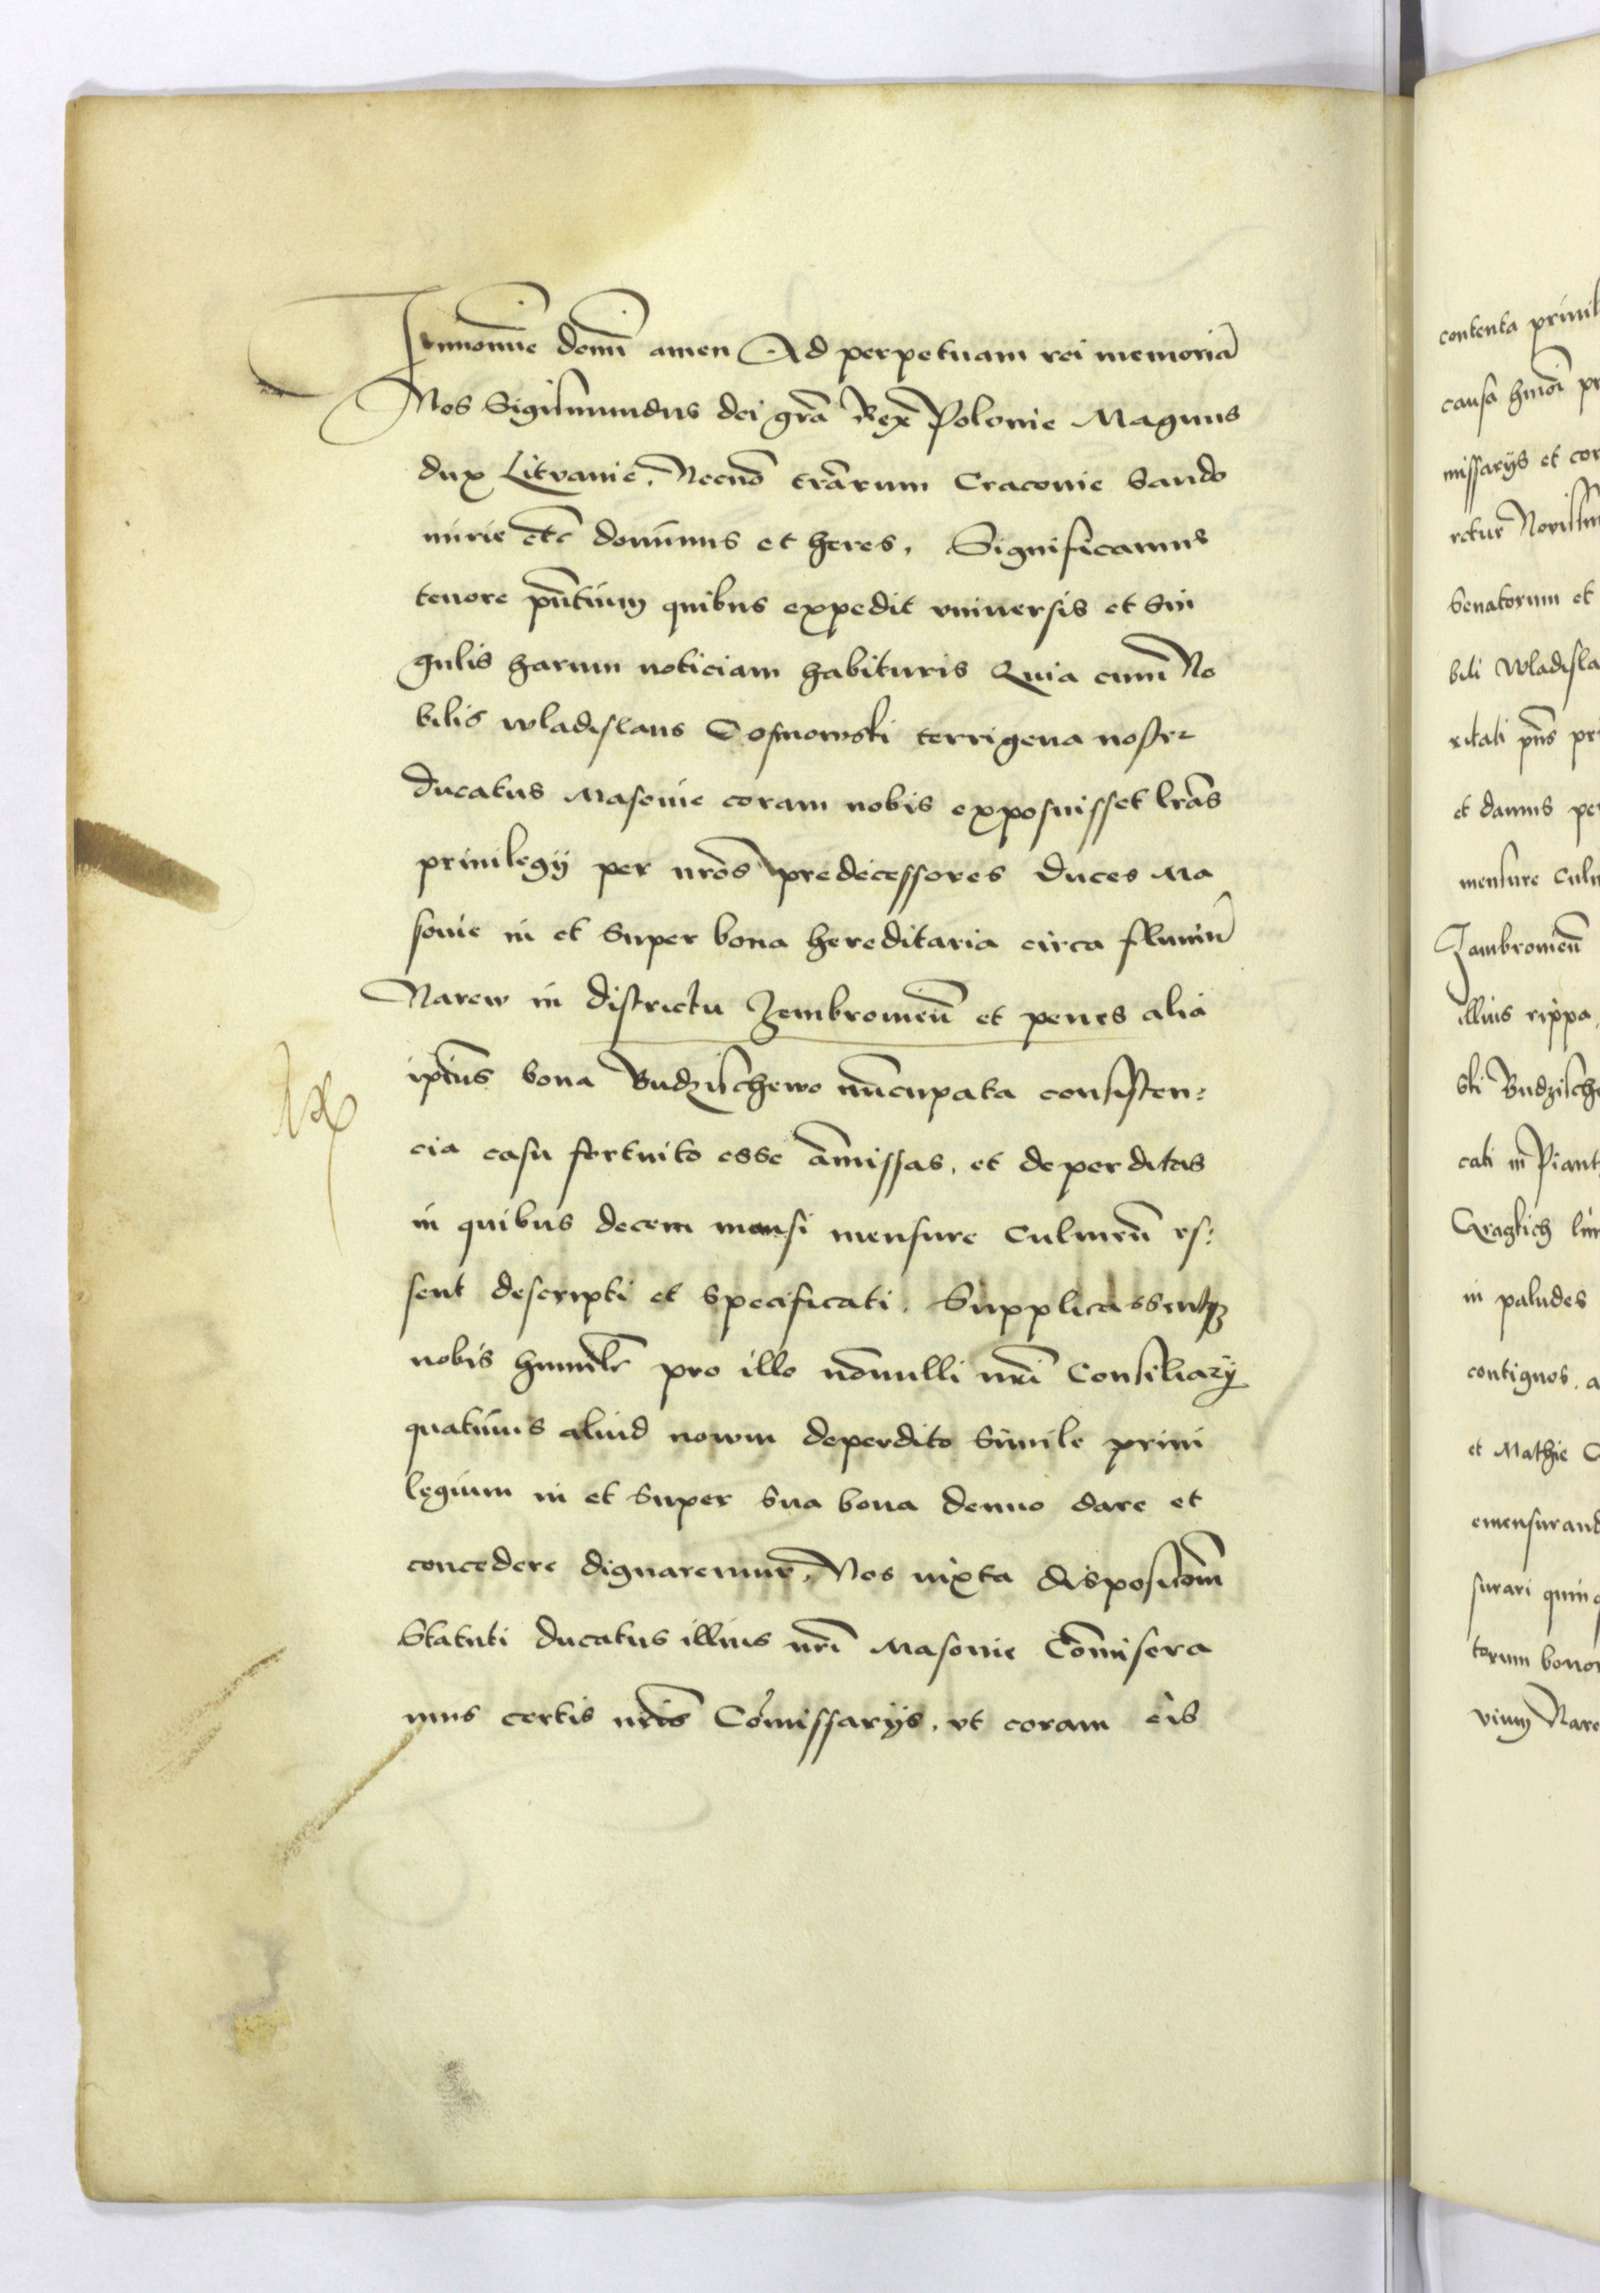 In nomine domī amen Ad perpetuam rei memoriā
Nos Sigismundus dei grā Rex Polonie Magnus
dux Litvanie, Necnō trārum Cracovie Sando
mirie etc dominus et heres, Significamus
tenore pn̄tium quibus expedit vniuersis et sin
gulis harum noticiam habituris Quia cum No
bilis wladislaus Cosnowski terrigena nostri
ducatus Masouie coram nobis exposuisset lrās
priuilegij per nrōs predecessores duces Ma
souie in et super bona hereditaria circa fluuiū
Narew in districtu Zembromien̄ et penes alia
ip̄ius bona Budzischewo nūcupata consisten-
cia casu fortuito esse āmissas, et deperditas
in quibus decem mansi mensure Culmen̄ es-
sent descripti et specificati. Supplicassentqz
nobis humilr̄ pro illo nōnulli nrī Consiliarij
quatinus aliud nowm deperdito simile priui
legium in et super sua bona denuo dare et
concedere dignaremur, Nos iuxta disposicōm
Statuti ducatus illius nrī Masouie Cōmisera
mus certis nrīs Cōmissarijs, vt coram eis
contenta priuil
causa hmōi pr
missarijs et co
retur Novissim
Senatorum et
bili Wladisla
ritati pn̄s pri
et damus pe
mensure Culm
Zambromien̄
illius rippa,
ski Budzische
cati in Piant
in paludes
contiguos, a
et Mathie C
emensurand
surari quinq
torum bonor
vium Nare